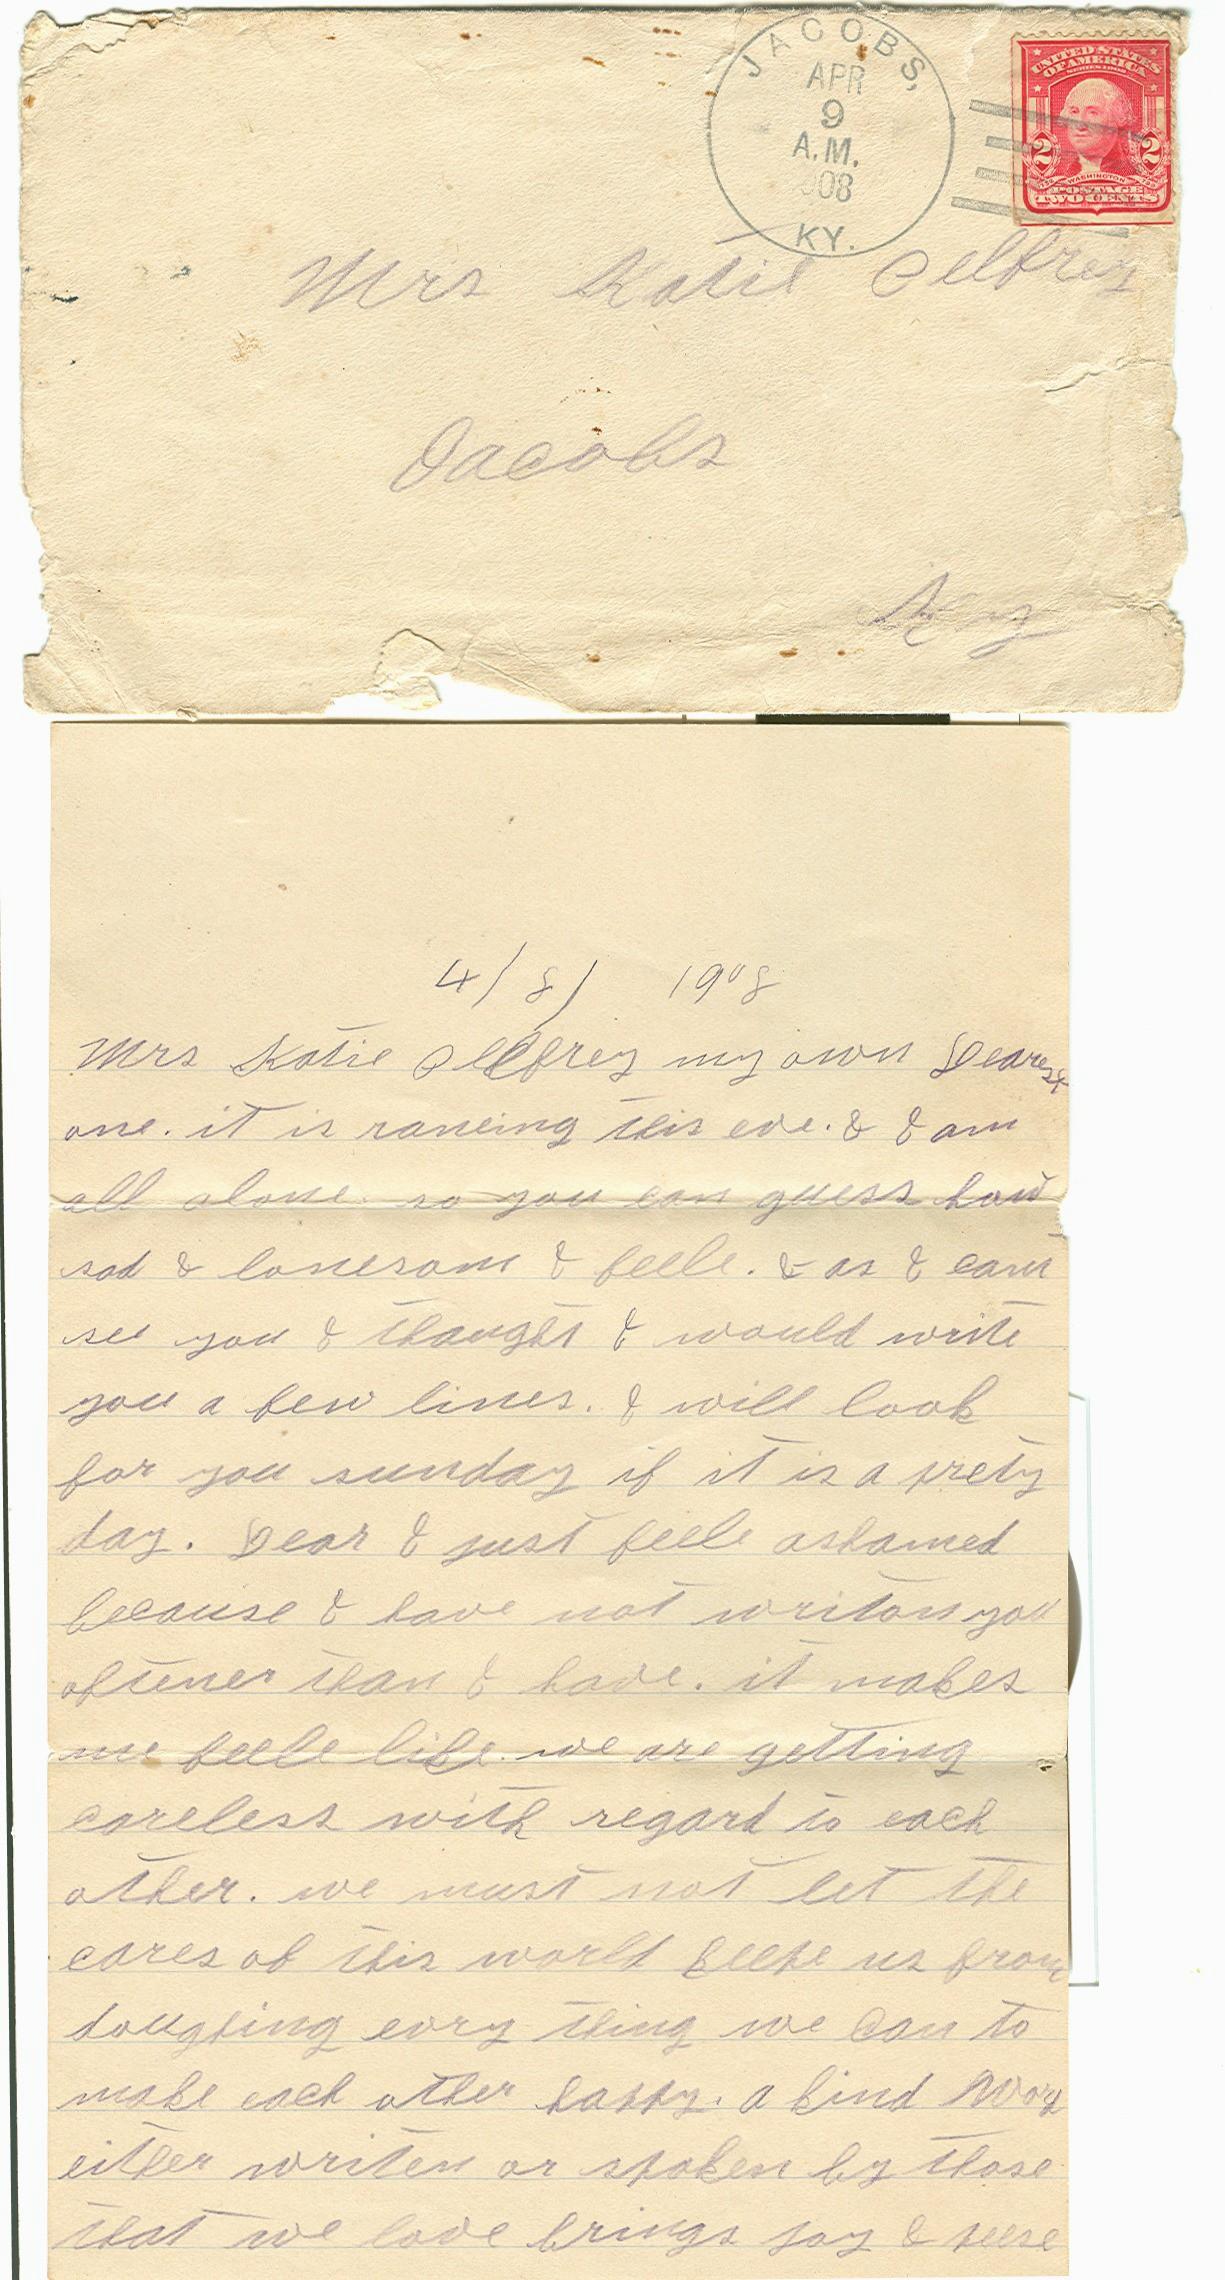 JACOBS,
APR
9
A.M.
908
KY.
UNITED STATES
OF AMERICA
SERIES 1902
2 2
WASHINGTON
POSTAGE
TWO CENTS
Mrs Katie Pelfrey
Jacobs
Ky
4/8/ 1908
Mrs Katie Pelfrey my own Dearest
one. it is raneing this eve. & I am
all alone. so you can guess how
sad & lonesom I feele. & as I cant
see you I thought I would write
you a few lines. I will look
for you sunday if it is a prety
day. Dear I just feele ashamed
because I have not writon you
oftener than I have. it makes
me feele like we are getting
careless with regard to each
other. we must not let the
cares of this world keepe us from
evry thing we can to
make each other happy. a kind Word
either writen or spoken by those
that we love brings joy & peese